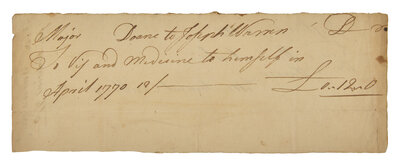 Major Doane to Joseph Warren D
To Vis and Medicine to himself in
April 1770 12/ £0..12..0